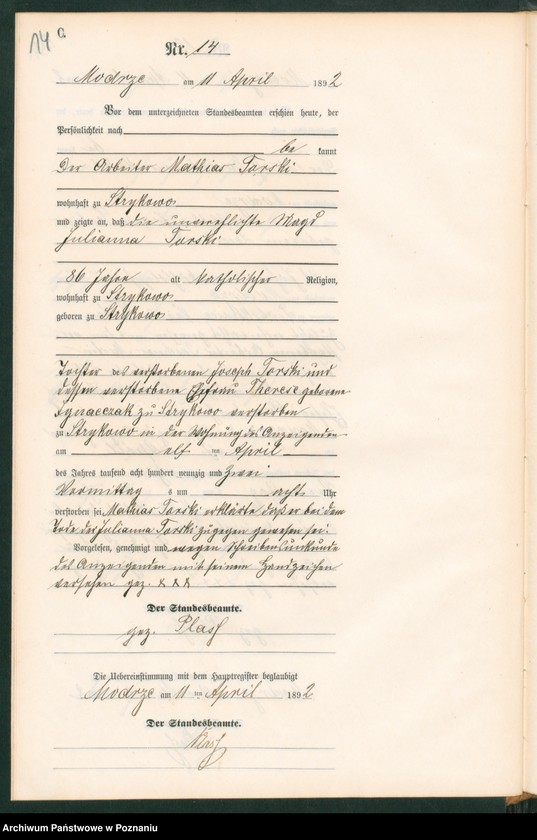 14
C.
Nr. 14
Modrze am 11 April 1892
Vor dem unterzeichneten Standesbeamten erschien heute, der
Persönlichkeit nach
be kannt
Der Arbeiter Mathias Torski
wohnhaft zu Strykowo
und zeigte an, daß die unverehlichte Magd
Julianna Torski
86 Jahre alt katholischer Religion,
wohnhaft zu Strykowo
geboren zu Strykowo
Tochter des verstorbenen Joseph Torski und
dessen verstorbene Ehefrau Therese geborene
Ignaczak zu Strykowo verstorben
zu Strykowo in der Wohnung des Anzeigenden
am elf ten April
des Jahres tausend acht hundert neunzig und zwei
Vormittag s um acht Uhr
verstorben sei, Mathias Torski erklärte daß er bei dem
Tode der Julianna Torski zugegen gewesen sei.
Vorgelesen, genehmigt und wegen Schreibensunkunde
des Anzeigenden mit seinem Handzeichen
versehen gez. x x x
Der Standesbeamte.
gez.
Die Uebereinstimmung mit dem Hauptregister beglaubigt
Modrze am 11 ten April 1892
Der Standesbeamte.
Archiwum Państwowe w Poznaniu